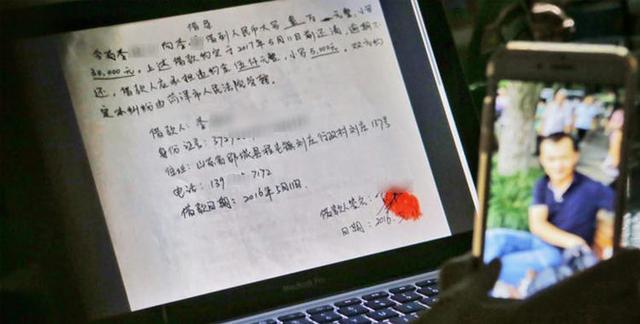 借条
今有李 向李 借到人民币大写 叁万 元整，小写
30,000元，上述借款约定于2017年5月11日前还清，逾期不
还，借款人应承担违约金伍仟元整，小写5,000元。双方约
定本纠纷由菏泽市人民法院管辖。
借款人：李
身份证号：3729
住址：山东省鄄城县 刘庄行政村刘庄137号
电话：139 7172
借款日期：2016年5月11日.
借款人签名：
日期：2016.
MacBook Pro